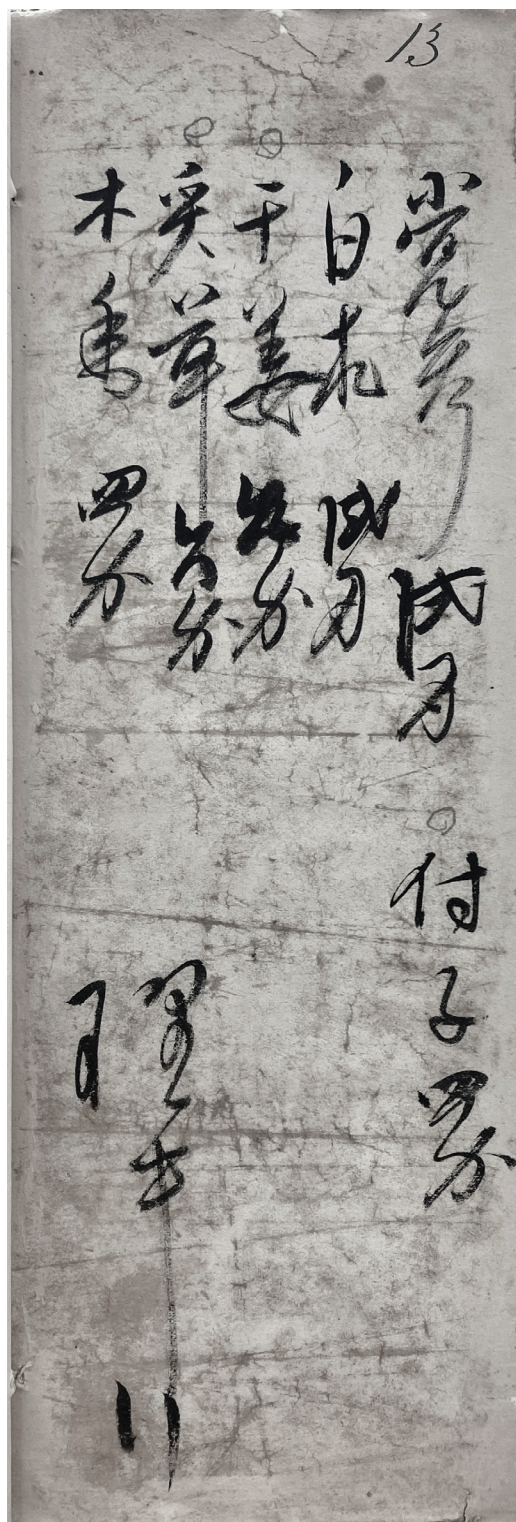 13
党参 弍刃 付子 四分
白朮 弍刃
干姜 分
炙草 分
木香 四分
理